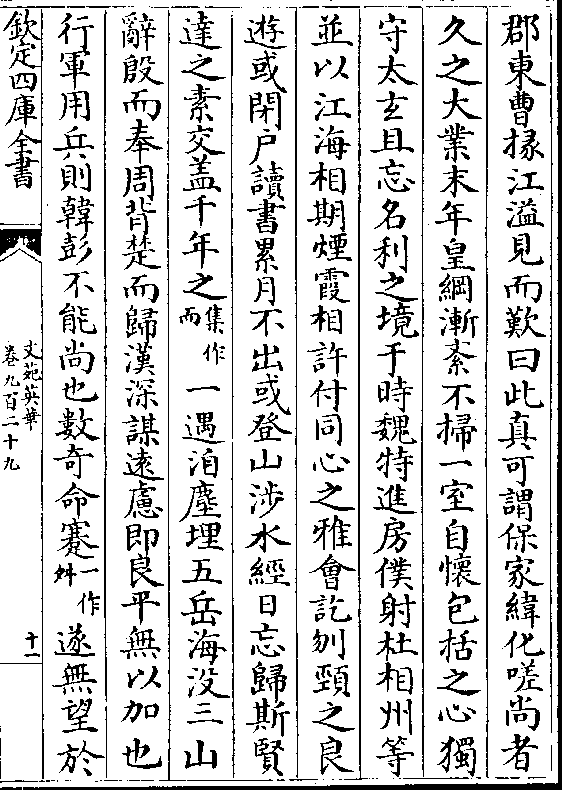 郡東曹掾江溢見而歎曰此真可謂保家緯化嗟尚者
久之大業末年皇綱漸紊不掃一室自懷包括之心獨
守太玄且忘名利之境于時魏特進房僕射杜相州等
並以江海相期煙霞相許付同心之雅會訖刎頸之良
遊或閉户讀書累月不出或登山涉水經日忘歸斯賢
達之素交盖千年之集作而一遇洎塵埋五岳海没三山
辭殷而奉周背楚而歸漢深謀遠慮即良平無以加也
行軍用兵則韓彭不能尚也數奇命蹇一作舛遂無望於
欽定四庫全書
文苑英華
卷九百二十九
十一